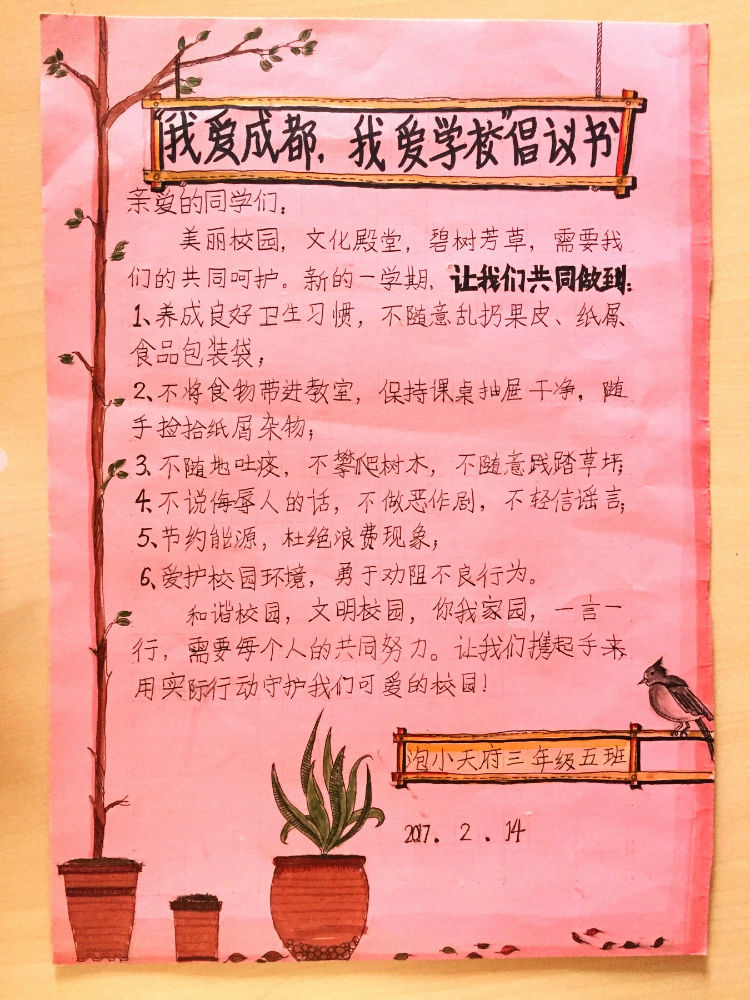 “我爱成都，我爱学校”倡议书
亲爱的同学们：
美丽校园，文化殿堂，碧树芳草，需要我
们的共同呵护。新的一学期，让我们共同做到：
1、养成良好卫生习惯，不随意乱扔果皮、纸屑、
食品包装袋；
2、不将食物带进教室，保持课桌抽屉干净，随
手捡拾纸屑杂物；
3、不随地吐痰，不攀爬树木，不随意践踏草坪；
4、不说侮辱人的话，不做恶作剧，不轻信谣言；
5、节约能源，杜绝浪费现象；
6、爱护校园环境，勇于劝阻不良行为。
和谐校园，文明校园，你我家园，一言一
行，需要每个人的共同努力。让我们携起手来，
用实际行动守护我们可爱的校园！
泡小天府三年级五班
2017.2.14